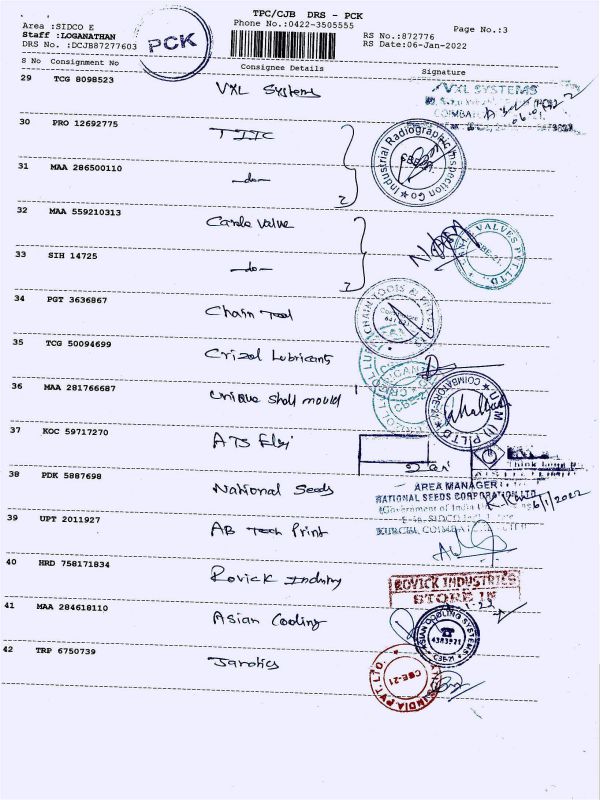 TPC/CJB DRS - PCK
Area :SIDCO E
Phone No.:0422-3505555
Page No.:3
Staff :LOGANATHAN
RS No.:872776
DRS No. :DCJB87277603
RS Date:06-Jan-2022
PCK
S No Consignment No
Consignee Details
Signature
29 TCG 8098523
VXL Systems
VXL SYSTEMS
30 PRO 12692775
TIIC
Industrial Radiographic Inspection Co
31 MAA 286500110
-do-
32 MAA 559210313
Valve
VALVES PVT LTD
33 SIH 14725
-do-
34 PGT 3636867
Chain Tool
CHAIN TOOLS &
35 TCG 50094699
Crizol Lubricants
36 MAA 281766687
unique shell mould
U.S.M (I) P LTD
COIMBATORE-21
37 KOC 59717270
ATS
38 PDK 5887698
National Seeds
AREA MANAGER
NATIONAL SEEDS CORPORATION LTD
(Government of India
6/1/2022
39 UPT 2011927
AB Tech Print
40 HRD 758171834
Rovick Industry
ROVICK INDUSTRIES
STORE IN
41 MAA 284618110
Asian Cooling
ASIAN COOLING SYSTEMS
CBE-21
42 TRP 6750739
INDIA PVT. LTD.
CBE-21